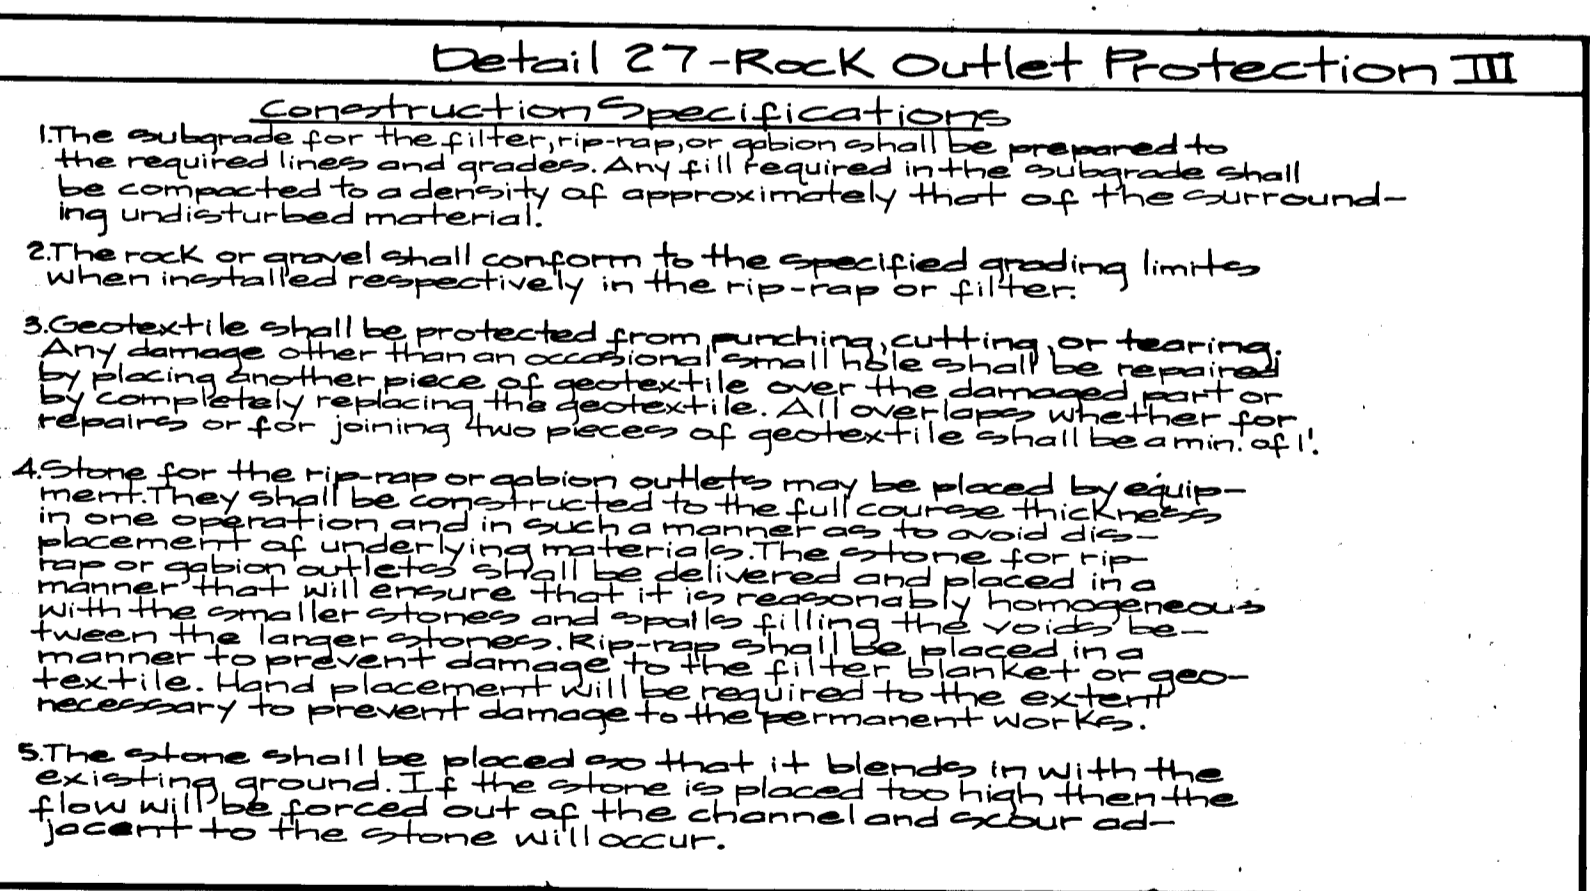 Detail 27-Rock Outlet Protection III
Construction Specifications
1.The subgrade for the filter, rip-rap, or gabion shall be prepared to
the required lines and grades. Any fill required in the subgrade shall
be compacted to a density of approximately that of the surround-
ing undisturbed material.
2.The rock or gravel shall conform to the specified grading limits
when installed respectively in the rip-rap or filter.
3.Geotextile shall be protected from punching, cutting, or tearing.
Any damage other than an occasional small hole shall be repaired
by placing another piece of geotextile over the damaged part or
by completely replacing the geotextile. All overlaps whether for
repairs or for joining two pieces of geotextile shall be a min. of 1'.
4.Stone for the rip-rap or gabion outlets may be placed by equip-
ment. They shall be constructed to the full course thickness
in one operation and in such a manner as to avoid dis-
placement of underlying materials. The stone for rip-
rap or gabion outlets shall be delivered and placed in a
manner that will ensure that it is reasonably homogeneous
with the smaller stones and spalls filling the voids be-
tween the larger stones. Rip-rap shall be placed in a
manner to prevent damage to the filter blanket or geo-
textile. Hand placement will be required to the extent
necessary to prevent damage to the permanent works.
5.The stone shall be placed so that it blends in with the
existing ground. If the stone is placed too high then the
flow will be forced out of the channel and scour ad-
jacent to the stone will occur.